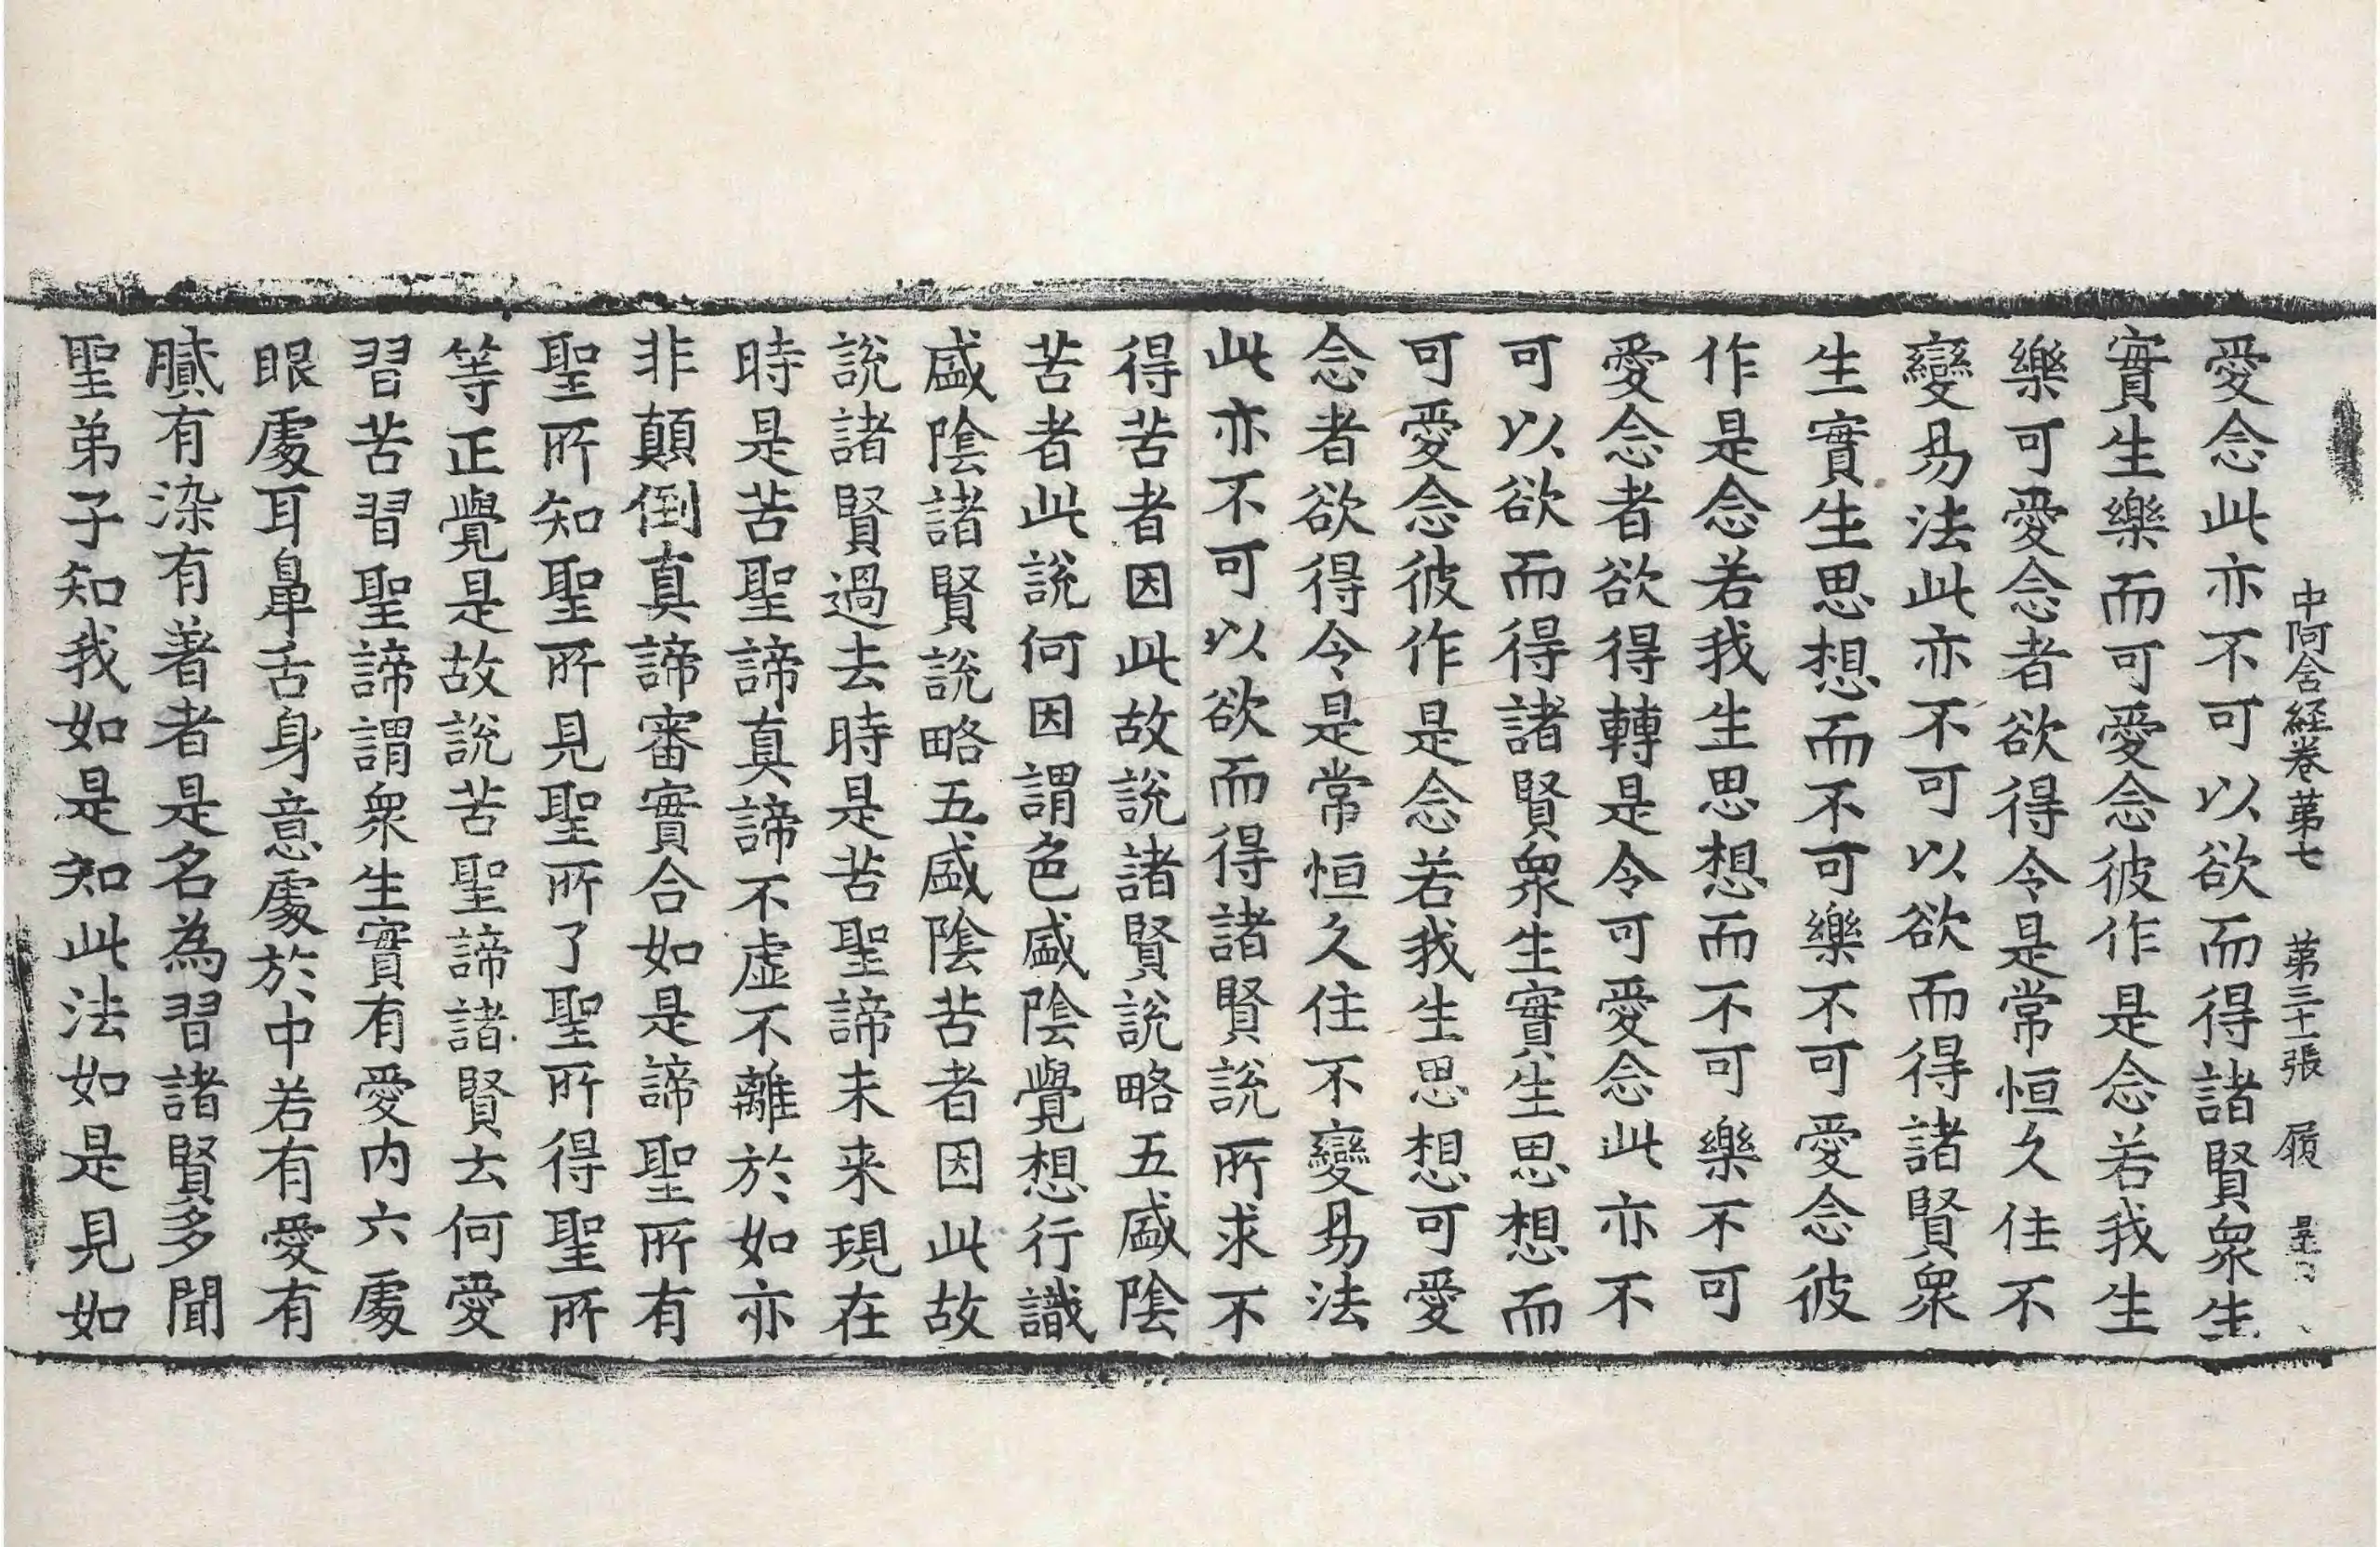 中阿含経卷第七 第三十一張 履
愛念此亦不可以欲而得諸賢衆生
實生樂而可愛念彼作是念若我生
樂可愛念者欲得令是常恒久住不
變易法此亦不可以欲而得諸賢衆
生實生思想而不可樂不可愛念彼
作是念若我生思想而不可樂不可
愛念者欲得轉是令可愛念此亦不
可以欲而得諸賢衆生實生思想而
可愛念彼作是念若我生思想可愛
念者欲得令是常恒久住不變易法
此亦不可以欲而得諸賢說所求不
得苦者因此故說諸賢說略五盛陰
苦者此說何因謂色盛陰覺想行識
盛陰諸賢說略五盛陰苦者因此故
說諸賢過去時是苦聖諦未来現在
時是苦聖諦真諦不虛不離於如亦
非顛倒真諦審實合如是諦聖所有
聖所知聖所見聖所了聖所得聖所
等正覺是故說苦聖諦諸賢云何愛
習苦習聖諦謂衆生實有愛内六處
眼處耳鼻舌身意處於中若有愛有
膩有染有著者是名為習諸賢多聞
聖弟子知我如是知此法如是見如